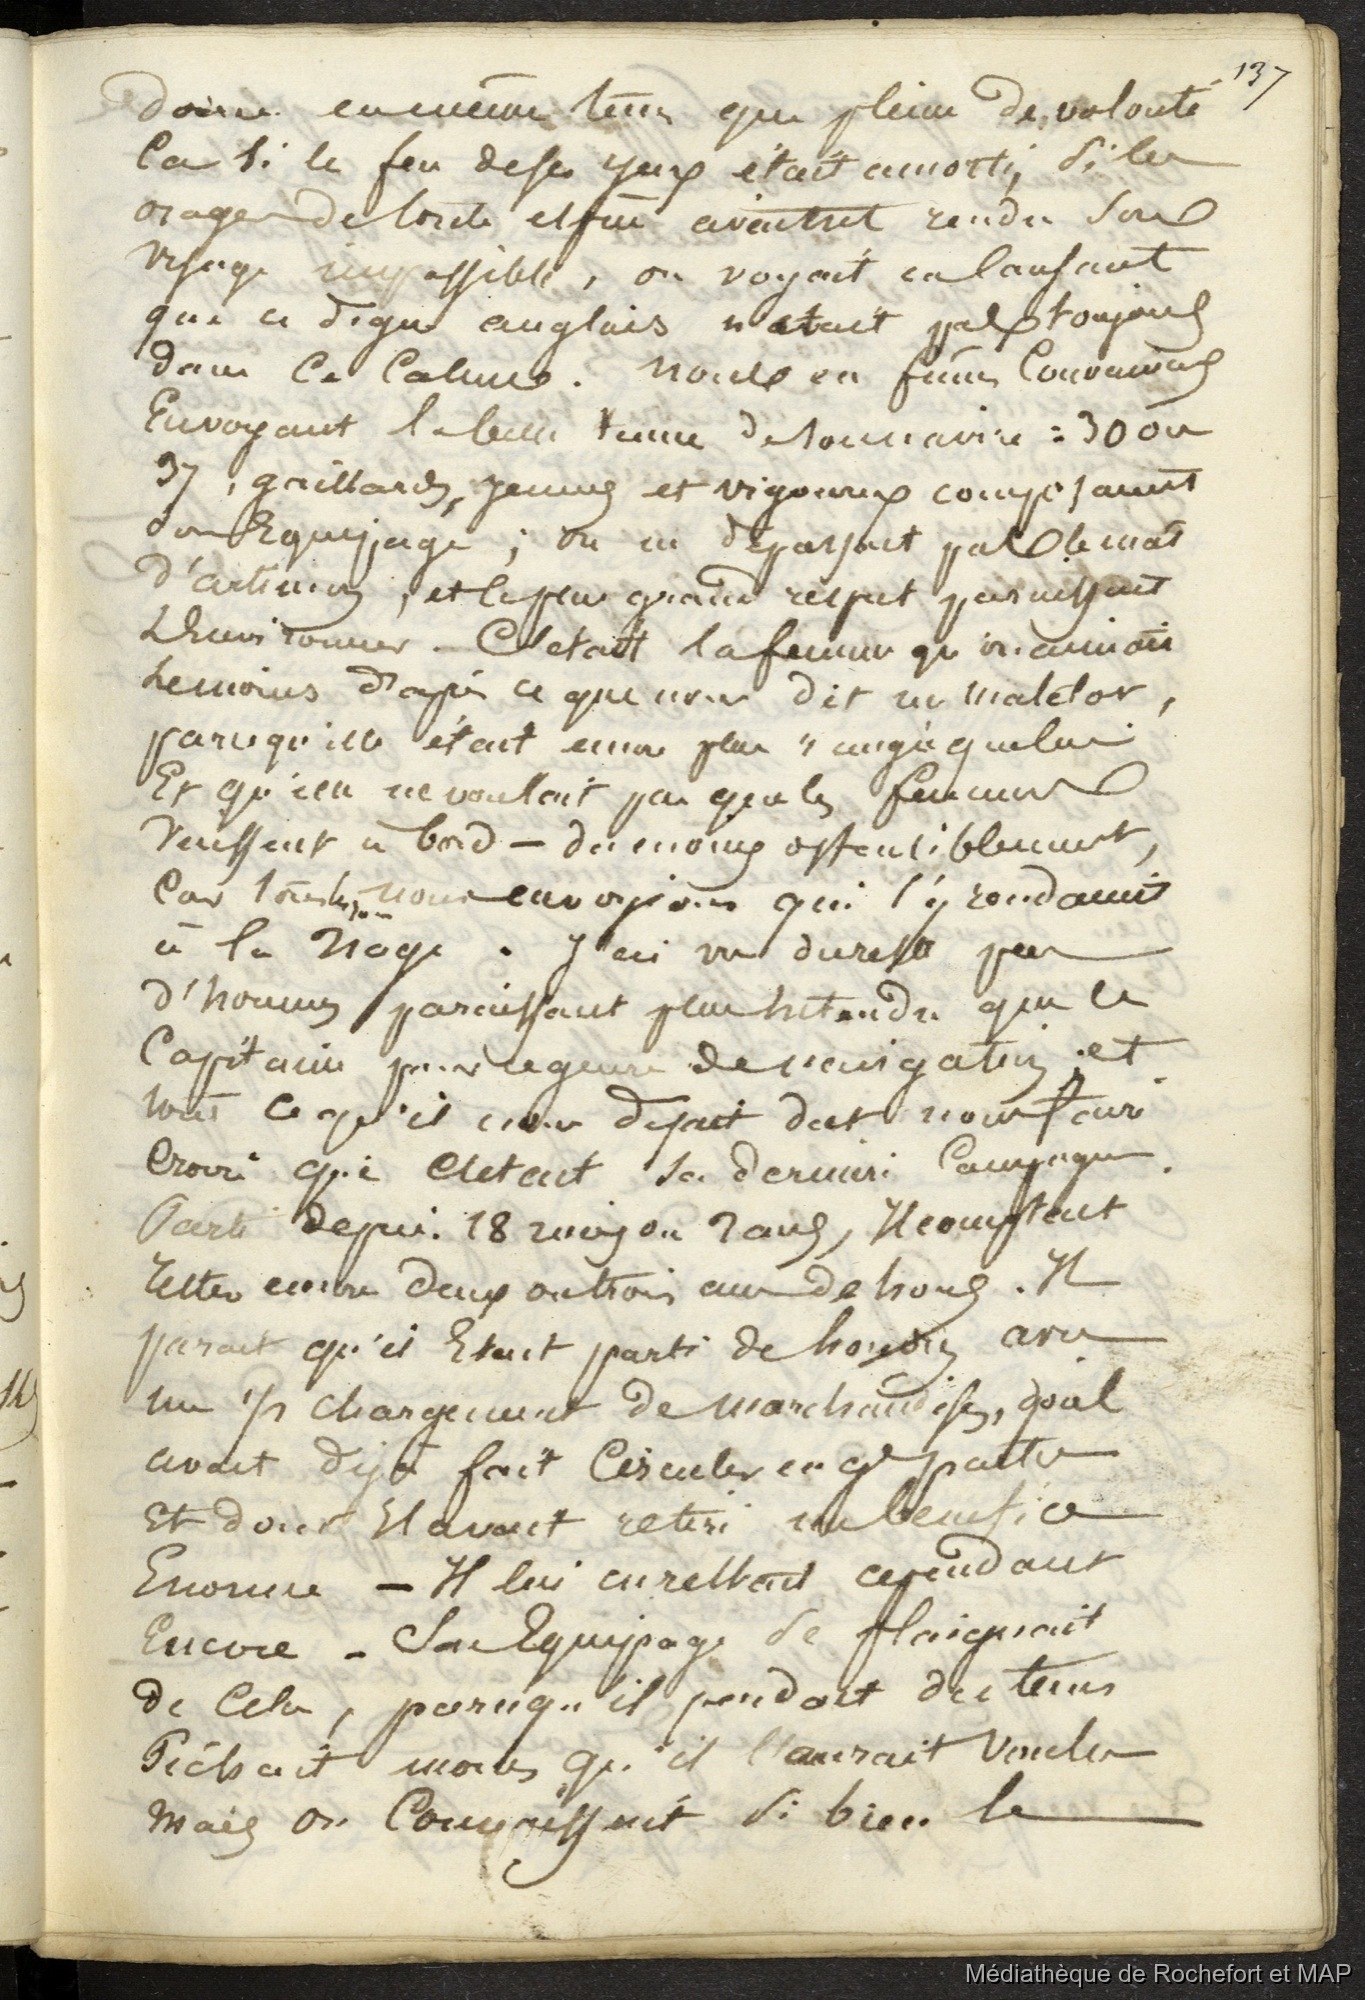 137
douce en même tems que pleine de volonté
Car si le feu de ses yeux était amorti, si les
orages de toute espèce avaient rendu son
visage impassible, on voyait en causant
que ce digne anglais n'était pas toujours
dans ce calme. Nous en fumes Convaincus
En voyant la belle tenue de son navire : 30 ou
37, gaillards, jeunes et vigoureux composaient
son Equipage ; on ne dépassait pas le mât
d'artimon, et le plus grand respect paraissait
L'Environner. C'etait la femme qu'on aimait
le moins d'après ce que nous dit un matelot,
parcequ'elle était encore plus rangée que lui
Et qu'elle ne voulait pas que les femmes
vinssent à bord – du moins ostensiblement,
Car tous les jours nous en voyions qui s'y rendaient
à la Nage. J'ai vu du reste peu
d'hommes paraissant plus entendu que le
Capitaine pour ce genre de navigation et
tout ce qu'il nous disait dut nous faire
Croire que C'etait sa dernière Campagne.
Parti depuis 18 mois ou 2 ans, Il comptait
rester encore deux ou trois ans dehors. Il
parait qu'il Etait parti de London avec
un 1/2 chargement de marchandises, qu'il
avait déjà fait Circuler en gde partie
Et dont Il avait retiré un benefice
Enorme – Il lui en restait cependant
Encore – Son Equipage se plaignait
de Cela, parcequ'il perdait du tems
Pêchait moins qu'il l'aurait voulu
Mais on Connaissait si bien le
Médiathèque de Rochefort et MAP